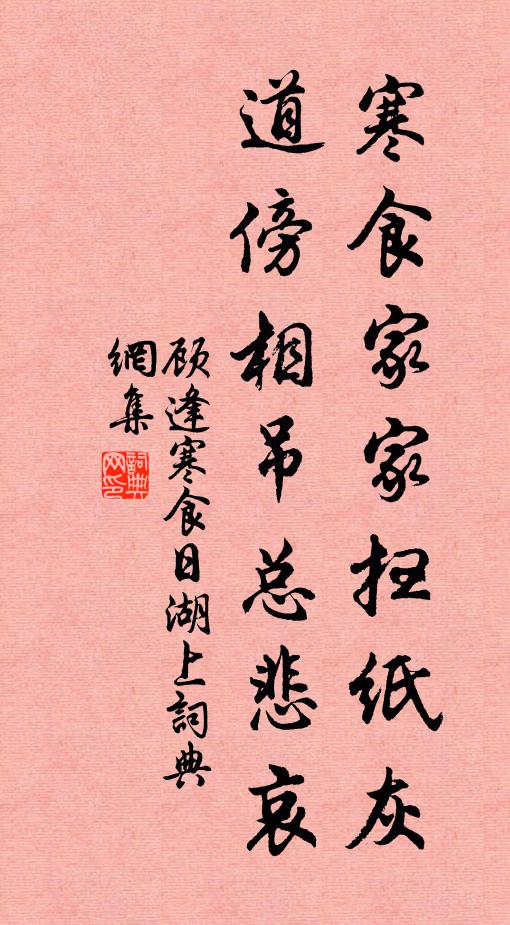 寒食家家扫纸灰
道傍相吊总悲哀
顾逢寒食日湖上詞典
網集
詞典
网印